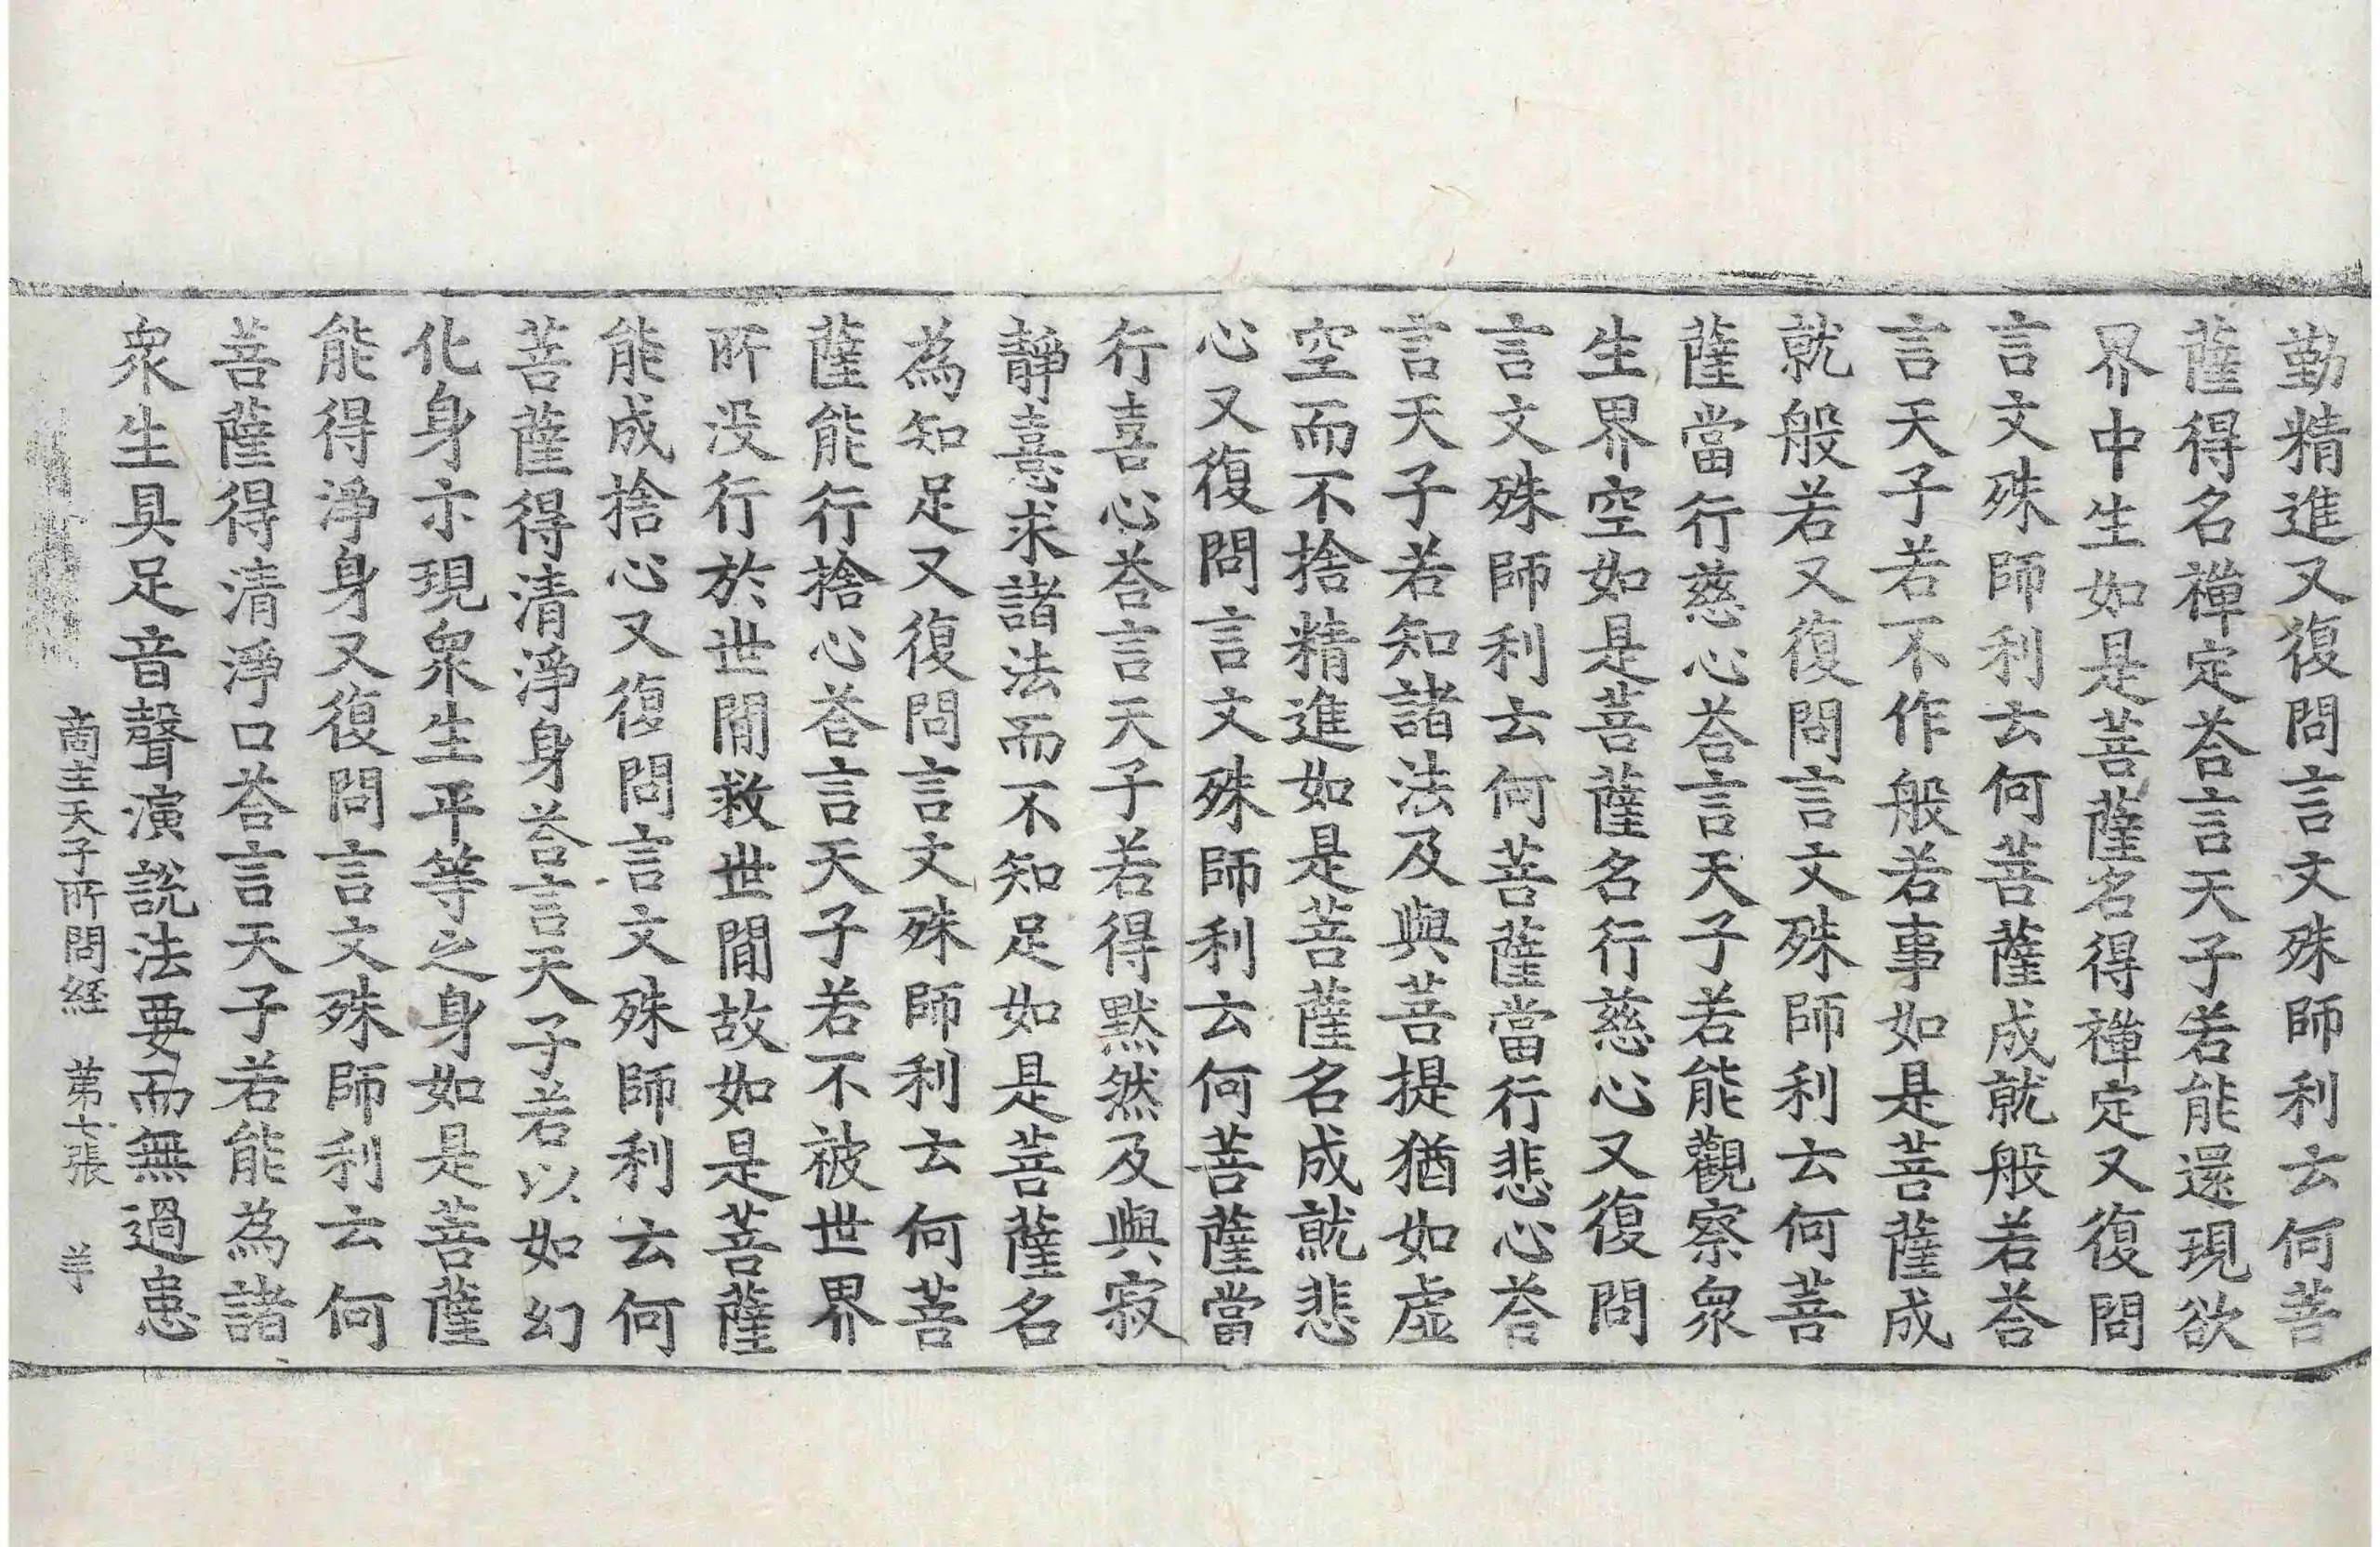 勤精進又復問言文殊師利云何菩
薩得名禪定荅言天子若能還現欲
界中生如是菩薩名得禪定又復問
言文殊師利云何菩薩成就般若荅
言天子若不作般若事如是菩薩成
就般若又復問言文殊師利云何菩
薩當行慈心荅言天子若能觀察衆
生界空如是菩薩名行慈心又復問
言文殊師利云何菩薩當行悲心荅
言天子若知諸法及與菩提猶如虛
空而不捨精進如是菩薩名成就悲
心又復問言文殊師利云何菩薩當
行喜心荅言天子若得黙然及與寂
靜憙求諸法而不知足如是菩薩名
為知足又復問言文殊師利云何菩
薩能行捨心荅言天子若不被世界
所没行於世閒救世閒故如是菩薩
能成捨心又復問言文殊師利云何
菩薩得清淨身荅言天子若以如幻
化身示現衆生平等之身如是菩薩
能得淨身又復問言文殊師利云何
菩薩得清淨口荅言天子若能為諸
衆生具足音聲演說法要而無過患
商主天子所問経 第七張 羊